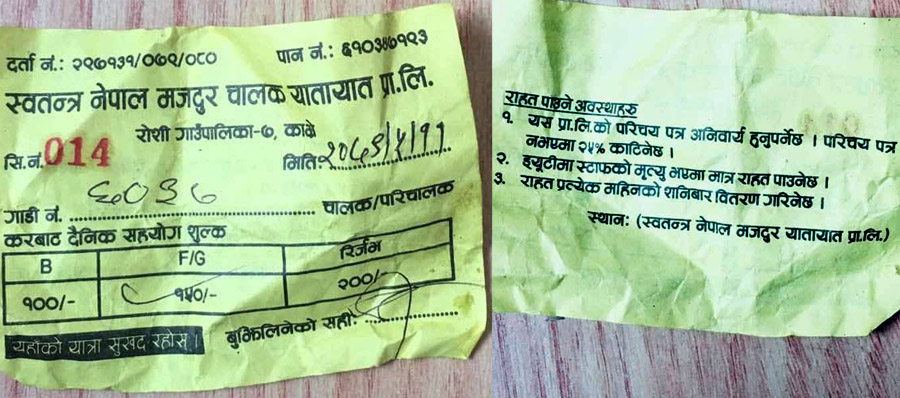 दर्ता नं.: २९७१३१/०७९/०८० पान नं.: ६१०३४७१२३
स्वतन्त्र नेपाल मजदुर चालक यातायात प्रा.लि.
रोशी गाउँपालिका-७, काभ्रे
सि.नं. 014 मिति:
गाडी नं. ६०३७ चालक/परिचालक
करबाट दैनिक सहयोग शुल्क
B F/G रिर्जभ
१००/- १५०/- २००/-
यहाँको यात्रा सुखद रहोस् । बुझिलिनेको सही:
राहत पाउने अवस्थाहरु
१. यस प्रा.लि.को परिचय पत्र अनिवार्य हुनुपर्नेछ । परिचय पत्र
नभएमा २५% काटिनेछ ।
२. ड्यूटीमा स्टाफको मृत्यु भएमा मात्र राहत पाउनेछ ।
३. राहत प्रत्येक महिनको शनिबार वितरण गरिनेछ ।
स्थान: (स्वतन्त्र नेपाल मजदुर यातायात प्रा.लि.)